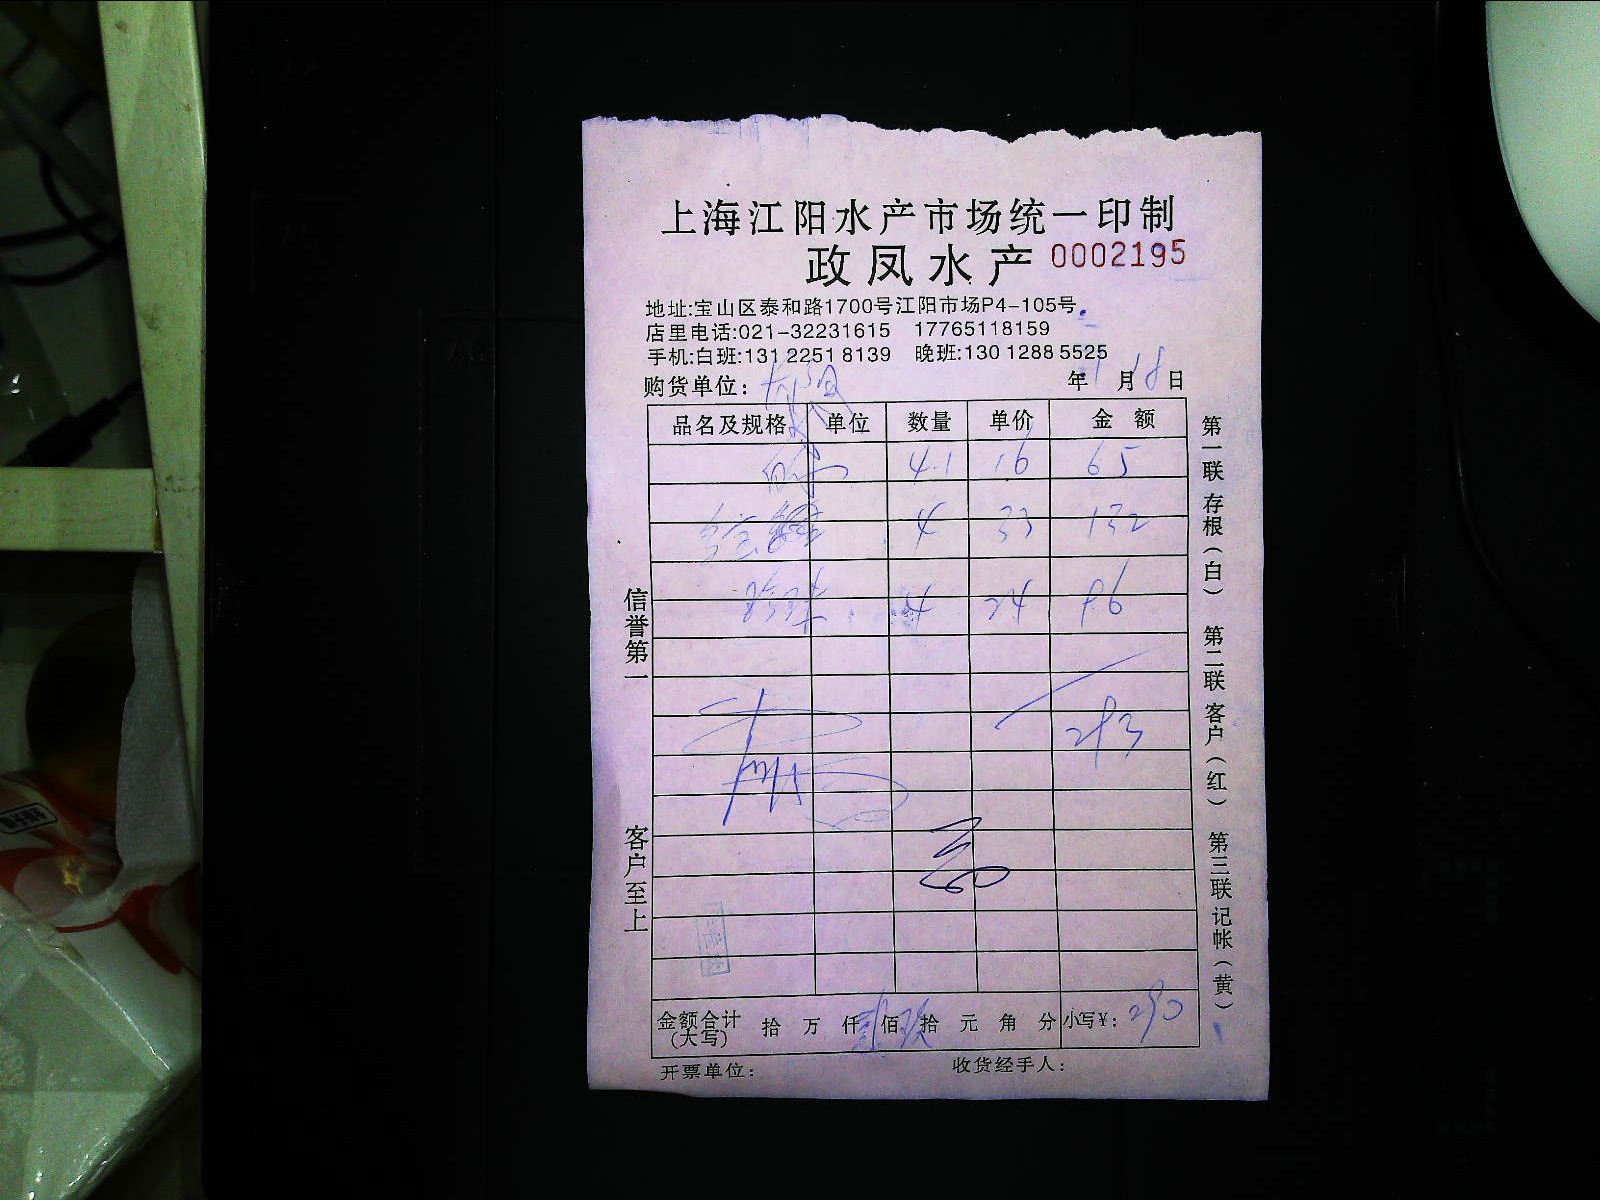 上海江阳水产市场统一印制
政凤水产 0002195
地址:宝山区泰和路1700号江阳市场P4-105号
店里电话:021-32231615 17765118159
手机:白班:131 2251 8139 晚班:130 1288 5525
购货单位: 年 月18日
品名及规格 单位 数量 单价 金额
4.1 16 65
4 33 132
4 24 96
293
金额合计(大写) 拾 万 仟贰佰玖拾 元 角 分 小写¥: 290
开票单位: 收货经手人:
信誉第一
客户至上
第一联 存根(白) 第二联 客户(红) 第三联 记帐(黄)